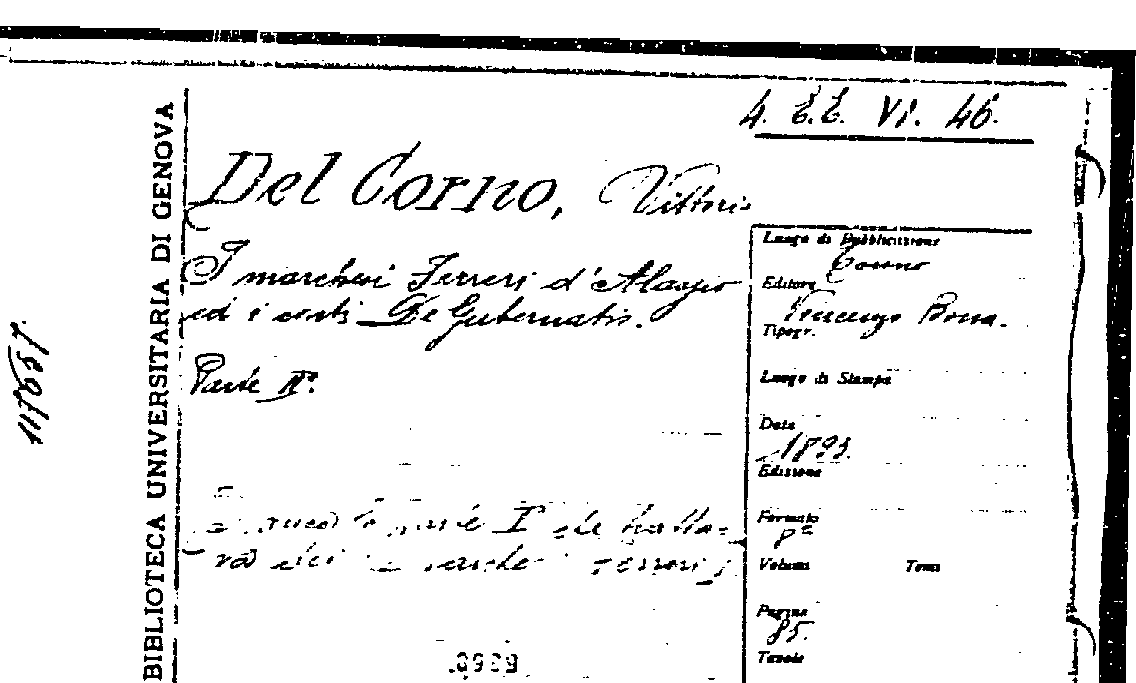 4. E.E. VI. 46.
BIBLIOTECA UNIVERSITARIA DI GENOVA
Del Corno, Vittorio
I marchesi Ferreri d'Alassio
ed i conti De Gubernatis.
Parte IIª.
che tratta-
va dei
Luogo di Pubblicazione
Torino
Editore
Vincenzo Bona.
Tipogr.
Luogo di Stampa
Data
1893.
Edizione
Formato
8º
Volumi Tomi
Pagine
85.
Tavole